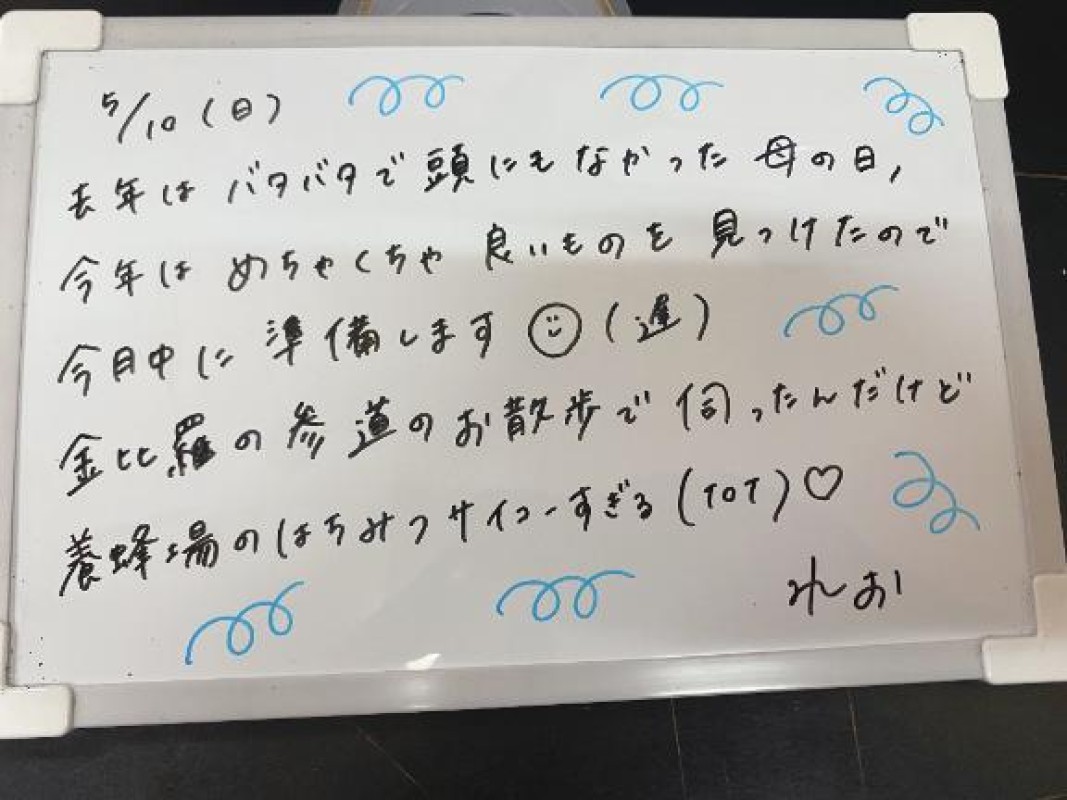 5/10(日)
去年はバタバタで頭にもなかった母の日,
今年はめちゃくちゃ良いものを見つけたので
今月中に準備します(遅)
金比羅の参道のお散歩で伺ったんだけど
養蜂場のはちみつサイコーすぎる(TOT)♡
れお